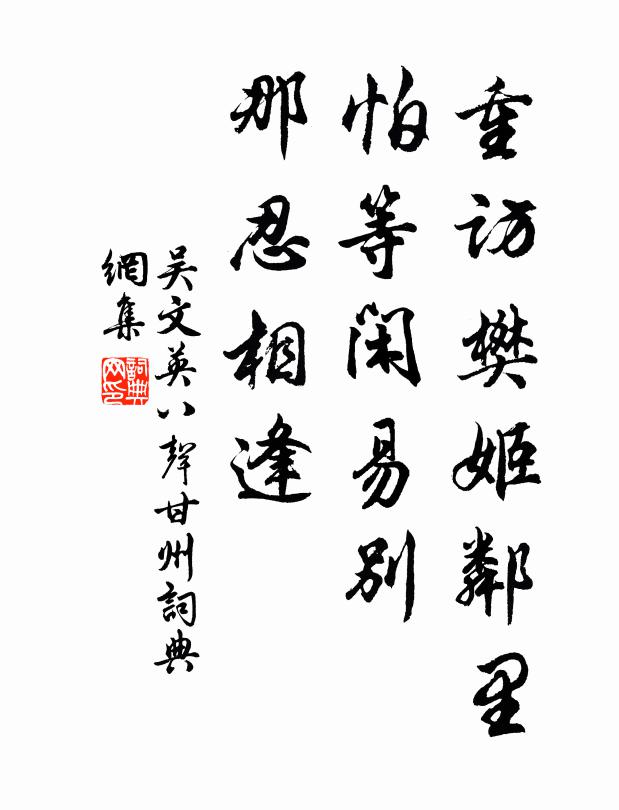 重访樊姬鄰里
怕等閑易别
那忍相逢
吴文英八聲甘州詞典
網集
詞典
网印